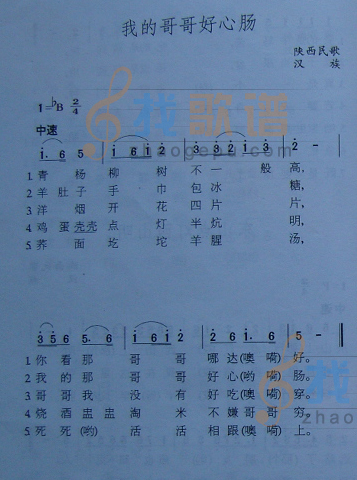 我的哥哥好心肠
陕西民歌
汉族
1=♭B 2/4
中速
1. 6 5 | 1 6 1 2 | 3 3 2 3 1 3 | 2 -
1 青杨柳树不一般高,
2 羊肚子手巾包冰糖,
3 洋烟开花四片片,
4 鸡蛋壳壳点灯半炕明,
5 荞面圪坨羊腥汤,
3 5 6 6. 6 | 2. 1 6 1 2 | 2 6 1. 6 | 5 -
1 你看那哥哥哪达(噢嗬)好。
2 我的那哥哥好心(噢嗬)肠。
3 哥哥我没有好吃(噢嗬)穿。
4 烧酒盅盅淘米不嫌哥哥穷。
5 死死(哟)活活相跟(噢嗬)上。
我歌谱
zhaogepu.com
我
zhao